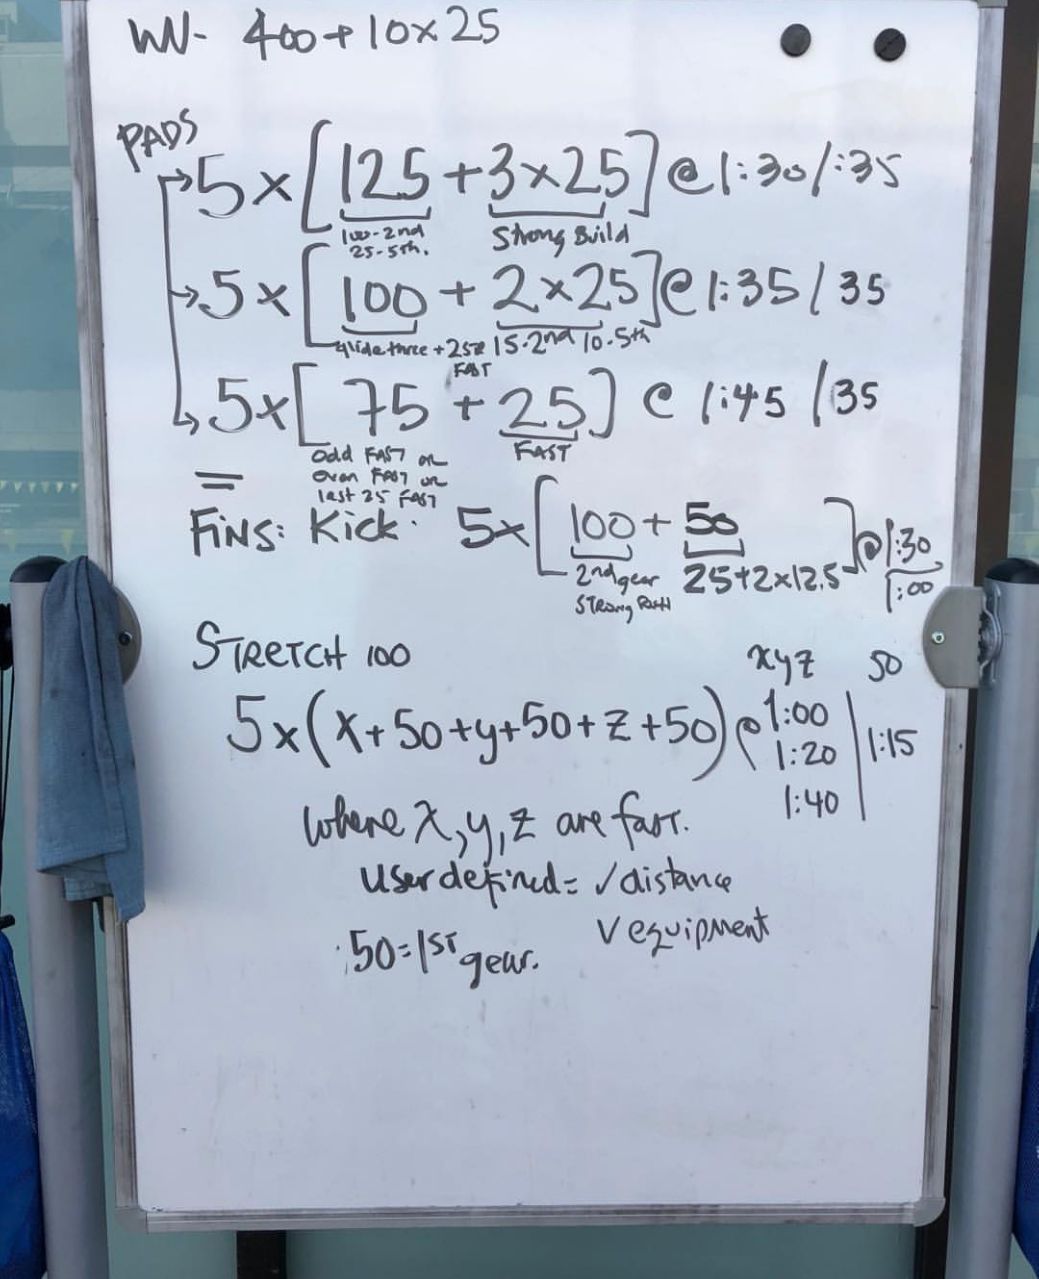 WU- 400 + 10 x 25
PADS
5 x [125 + 3 x 25] @ 1:30/:35
100-2nd
25-5th.
Strong Build
5 x [100 + 2 x 25] @ 1:35/35
glide three + 25 FAST
15-2nd 10-5th
5 x [75 + 25] @ 1:45/35
odd FAST or
even FAST or
last 25 FAST
FAST
=
FiNS: Kick. 5 x [100 + 50] @ 1:30
1:00
2nd gear
STRong
25 + 2 x 12.5
STRETCH 100
xyz 50
5 x (x + 50 + y + 50 + z + 50) @ 1:00 | 1:15
1:20
1:40
where x, y, z are fast.
User defined = √distance
√ equipment
50 = 1ST gear.